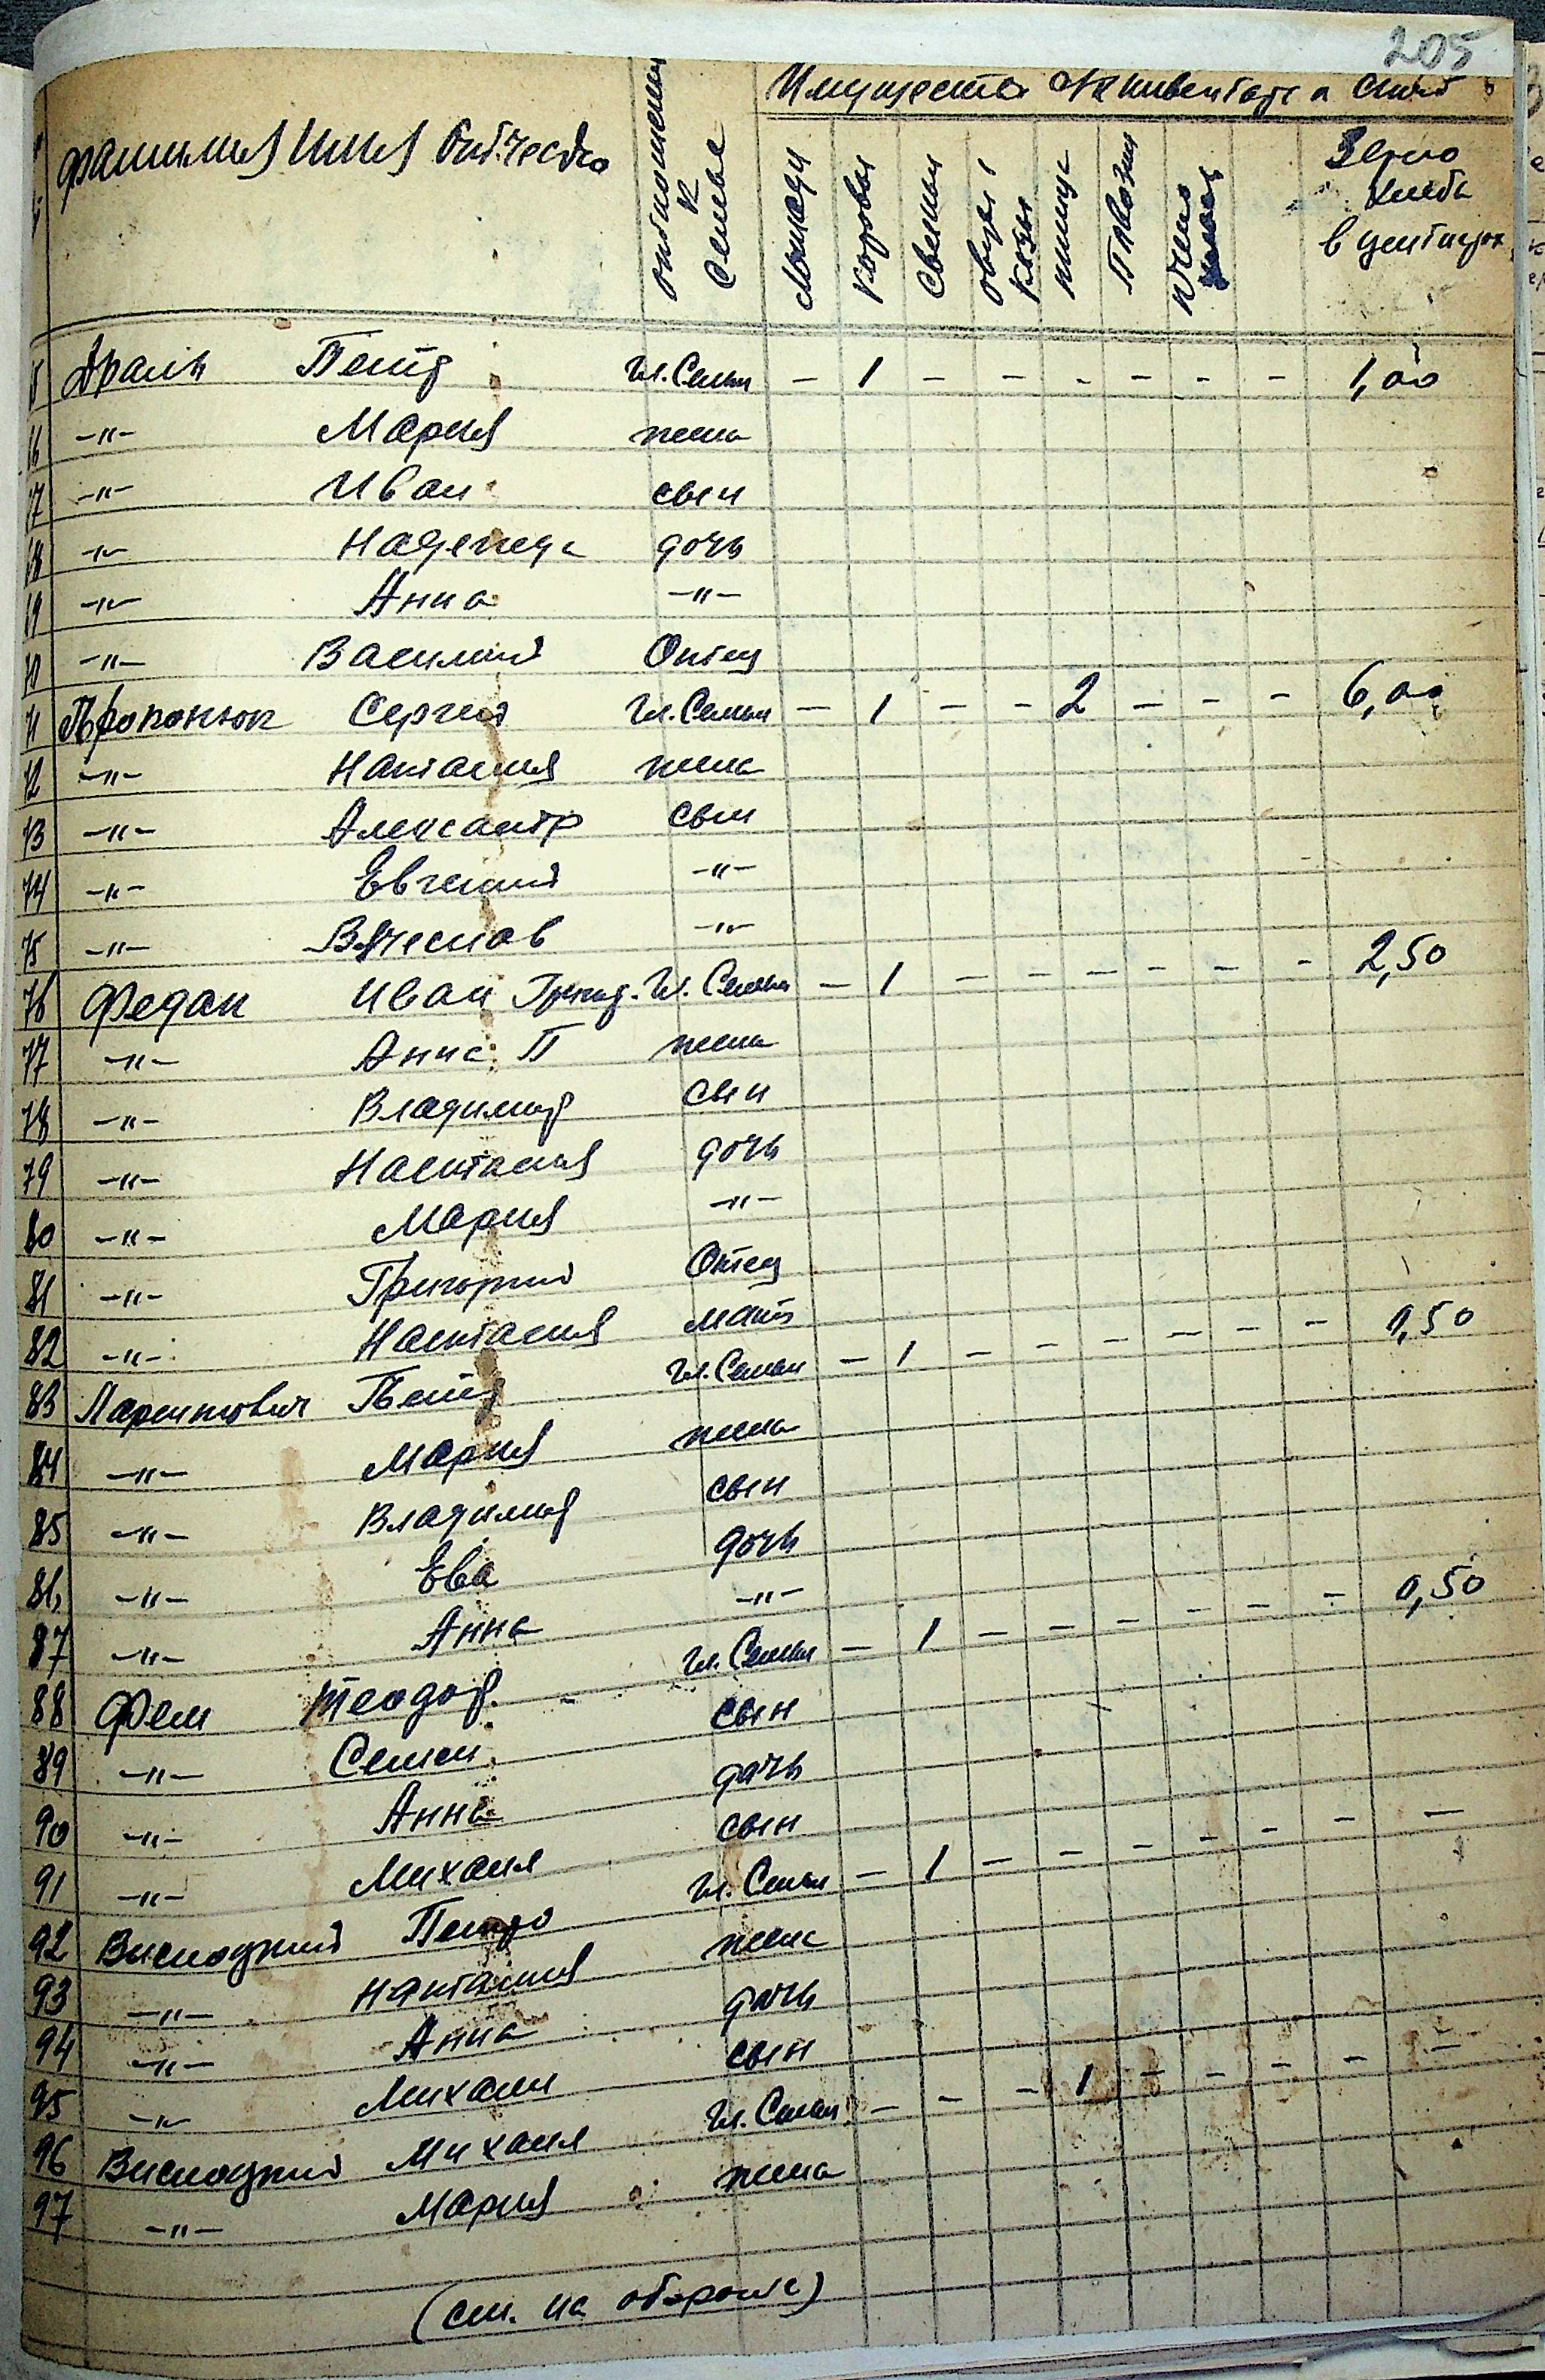 205
Имущество инвентарь и скот
Фамилия Имя Отчество
отношение к семье
Лошади
Коровы
Свиньи
овцы козы
птица
Повозки
Зерно хлеба в центнерах
5 Драль Петр Гл. Семьи – 1 – – – – – – 1,00
66 –"– Мария жена
67 –"– Иван сын
68 –"– Надежда дочь
69 –"– Анна –"–
70 –"– Василий Отец
71 Прокопюк Сергей Гл. Семьи – 1 – – 2 – – – 6,00
72 –"– Настасия жена
73 –"– Александр сын
74 –"– Евгений –"–
75 –"– Вячеслав –"–
76 Федак Иван Григор. Гл. Семьи – 1 – – – – – – 2,50
77 –"– Анна П жена
78 –"– Владимир сын
79 –"– Настасия дочь
80 –"– Мария –"–
81 –"– Григорий Отец
82 –"– Настасия Мать
83 Ларинович Петр Гл. Семьи – 1 – – – – – – 0,50
84 –"– Мария жена
85 –"– Владимир сын
86 –"– Ева дочь
87 –"– Анна –"–
88 Фем Теодор Гл. Семьи – 1 – – – – – – 0,50
89 –"– Семен сын
90 –"– Анна дочь
91 –"– Михаил сын
92 Вислоцкий Петро Гл. Семьи – 1 – – – – – – –
93 –"– Настасия жена
94 –"– Анна дочь
95 –"– Михаил сын
96 Вислоцкий Михаил Гл. Семьи – – – 1 – – – – –
97 –"– Мария жена
(см. на обороте)